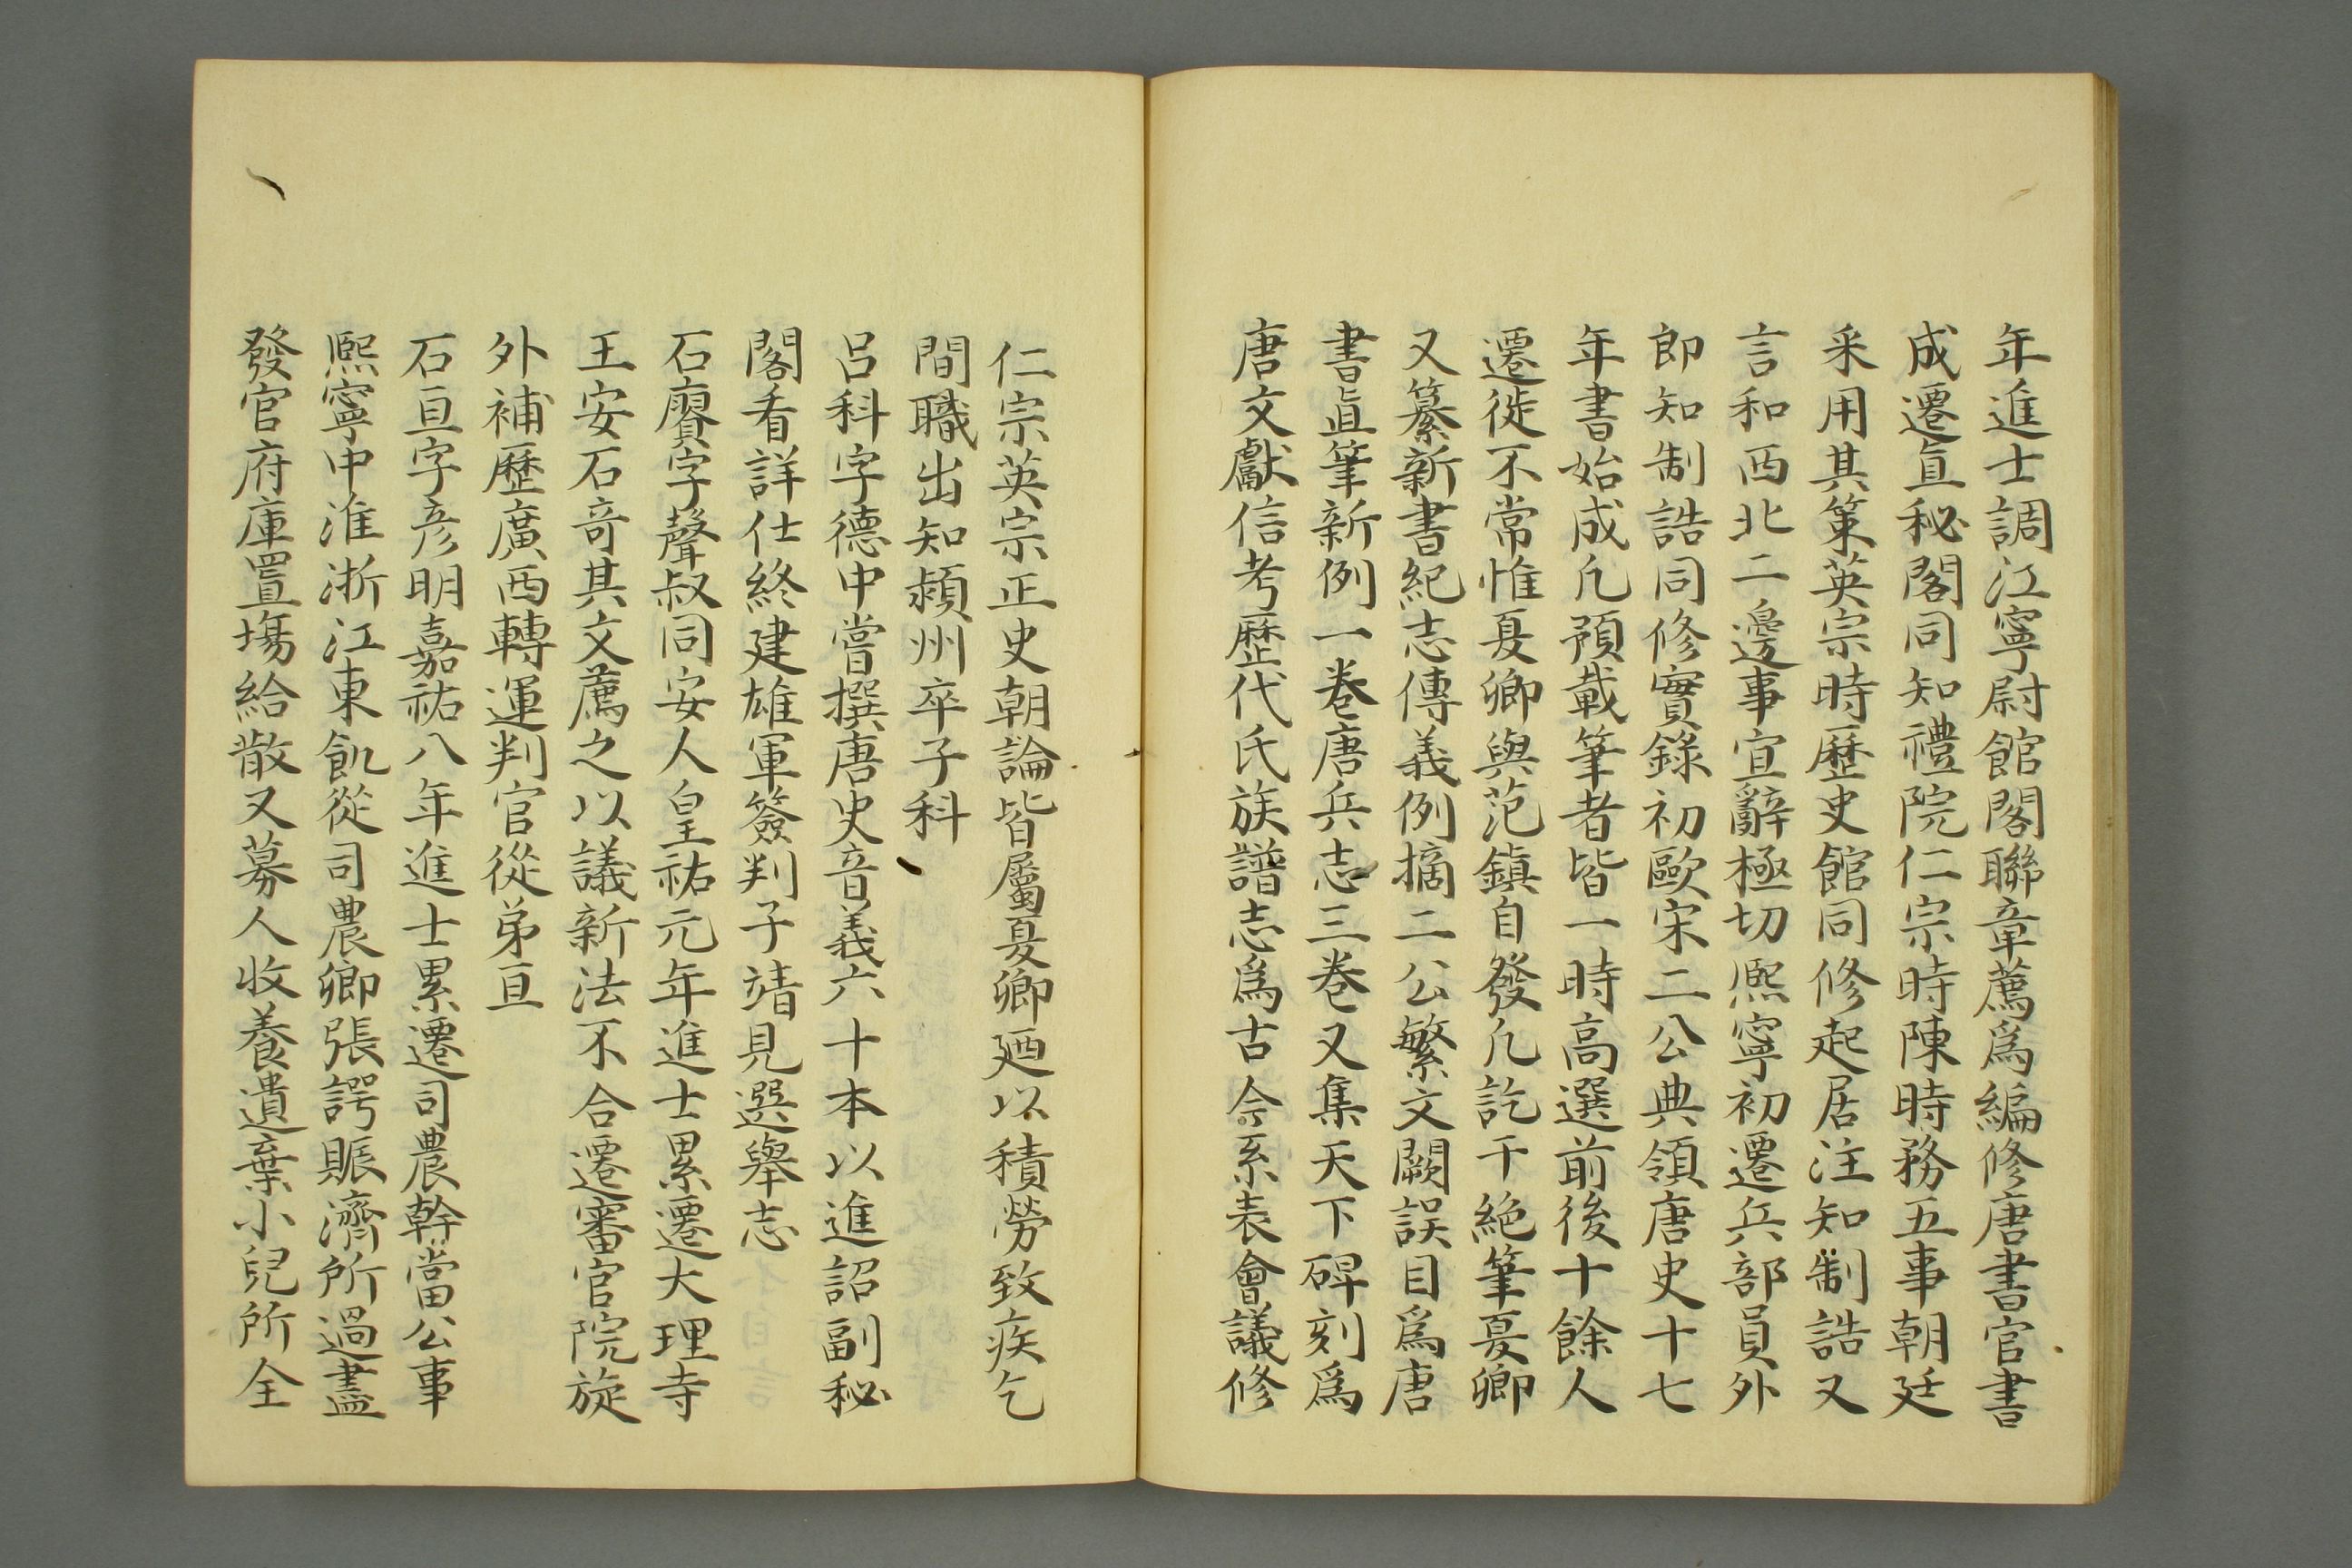 年進士調江寧尉館閣聯章薦爲編修唐書官書
成遷直秘閣同知禮院仁宗時陳時務五事朝廷
采用其策英宗時歷史館同修起居注知制誥又
言和西北二邊事宜辭極切熙寧初遷兵部員外
郎知制誥同修實錄初歐宋二公典領唐史十七
年書始成凡預載筆者皆一時高選前後十餘人
遷徙不常惟夏卿與范鎮自發凡訖干絕筆夏卿
又纂新書紀志傳義例摘二公繁文闕誤目爲唐
書直筆新例一卷唐兵志三卷又集天下碑刻爲
唐文獻信考歷代氏族譜志爲古今系表會議修
仁宗英宗正史朝論皆屬夏卿廼以積勞致疾乞
間職出知潁州卒子科
呂科字德中嘗撰唐史音義六十本以進詔副秘
閣看詳仕終建雄軍簽判子靖見選舉志
石賡字聲叔同安人皇祐元年進士累遷大理寺
王安石奇其文薦之以議新法不合遷審官院旋
外補歷廣西轉運判官從弟亘
石亘字彥明嘉祐八年進士累遷司農幹當公事
熙寧中淮浙江東飢從司農卿張諤賑濟所過盡
發官府庫置場給散又募人收養遺棄小兒所全